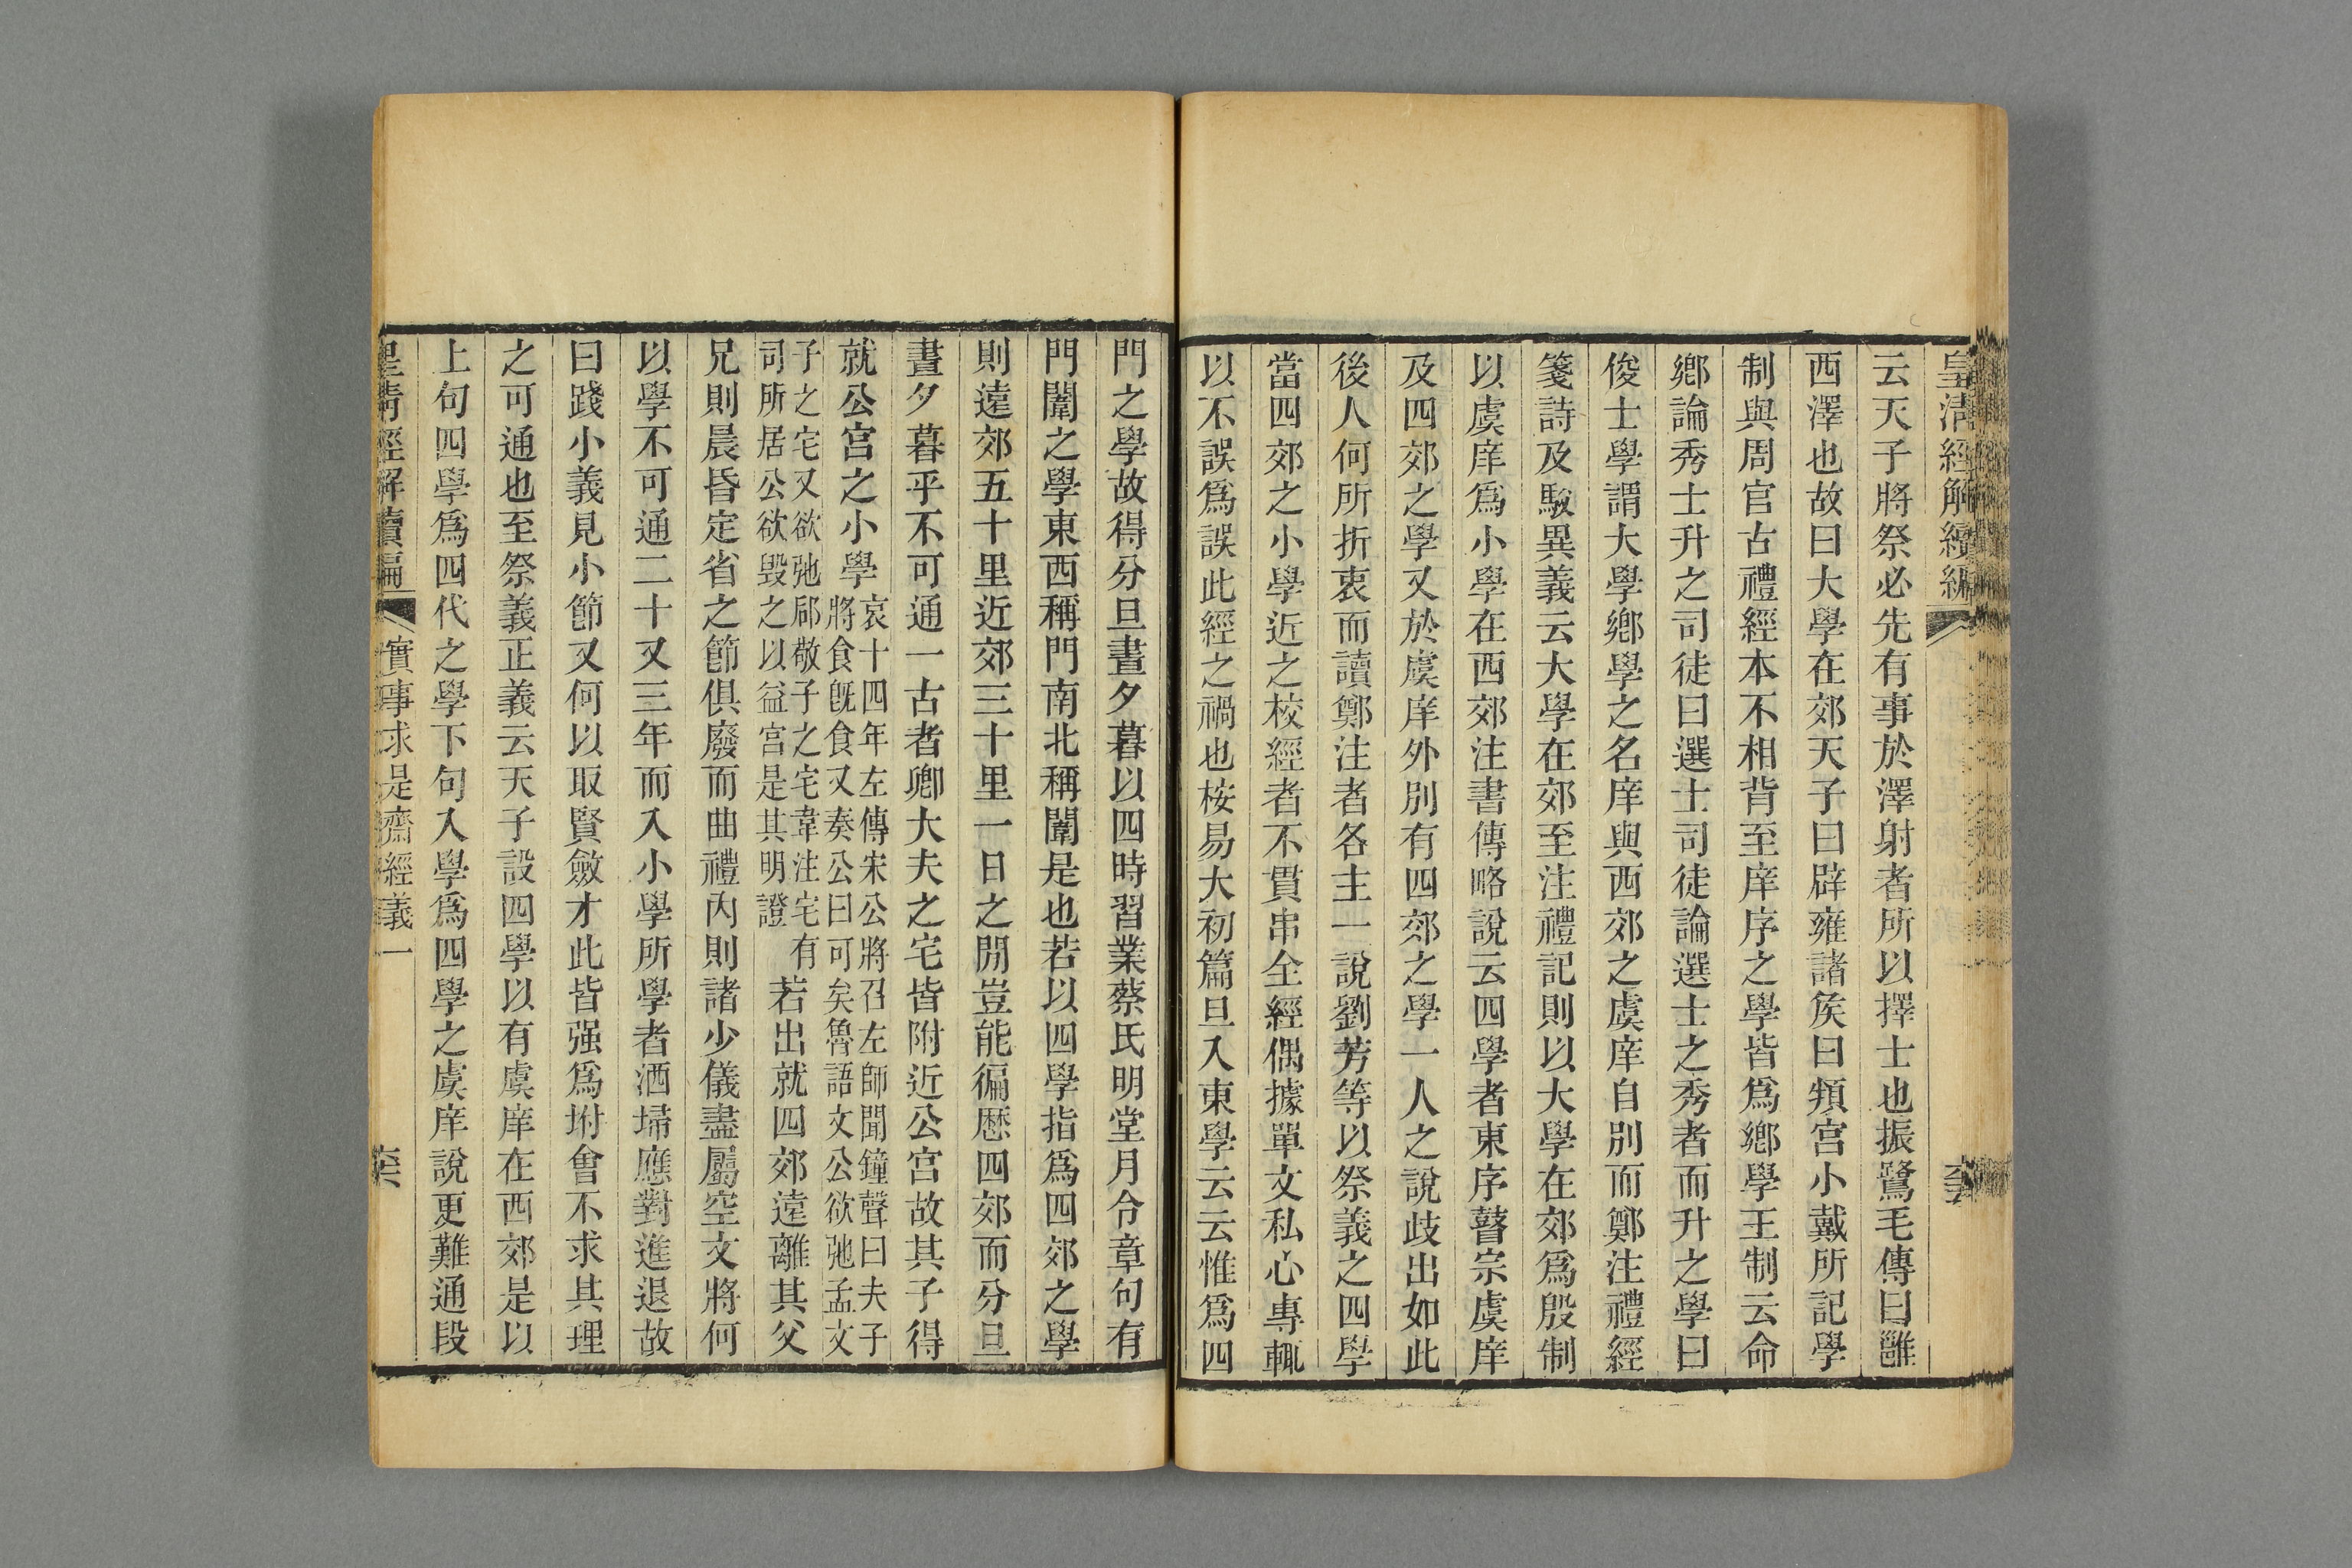 皇淸經解續編
云天子將祭必先有事於澤射者所以擇士也振鷺毛傳曰雝
西澤也故曰大學在郊天子曰辟雍諸矦曰頖宮小戴所記學
制與周官古禮經本不相背至庠序之學皆爲鄕學王制云命
鄕論秀士升之司徒曰選士司徒論選士之秀者而升之學曰
俊士學謂大學鄕學之名庠與西郊之虞庠自別而鄭注禮經
箋詩及駮異義云大學在郊至注禮記則以大學在郊爲殷制
以虞庠爲小學在西郊注書傳略說云四學者東序瞽宗虞庠
及四郊之學又於虞庠外別有四郊之學一人之說歧出如此
後人何所折衷而讀鄭注者各主一說劉芳等以祭義之四學
當四郊之小學近之校經者不貫串全經偶據單文私心專輒
以不誤爲誤此經之禍也桉易大初篇旦入東學云云惟爲四
門之學故得分旦晝夕暮以四時習業蔡氏明堂月令章句有
門闈之學東西稱門南北稱闈是也若以四學指爲四郊之學
則遠郊五十里近郊三十里一日之閒豈能徧歷四郊而分旦
晝夕暮乎不可通一古者卿大夫之宅皆附近公宮故其子得
就公宮之小學哀十四年左傳宋公將召左師聞鐘聲曰夫子
將食旣食又奏公曰可矣魯語文公欲弛孟文
子之宅又欲弛郈敬子之宅韋注宅有
司所居公欲毀之以益宮是其明證若出就四郊遠離其父
兄則晨昏定省之節俱廢而曲禮內則諸少儀盡屬空文將何
以學不可通二十又三年而入小學所學者洒埽應對進退故
曰踐小義見小節又何以取賢斂才此皆强爲坿會不求其理
之可通也至祭義正義云天子設四學以有虞庠在西郊是以
上句四學爲四代之學下句入學爲四學之虞庠說更難通段
皇淸經解續編
實事求是齋經義一